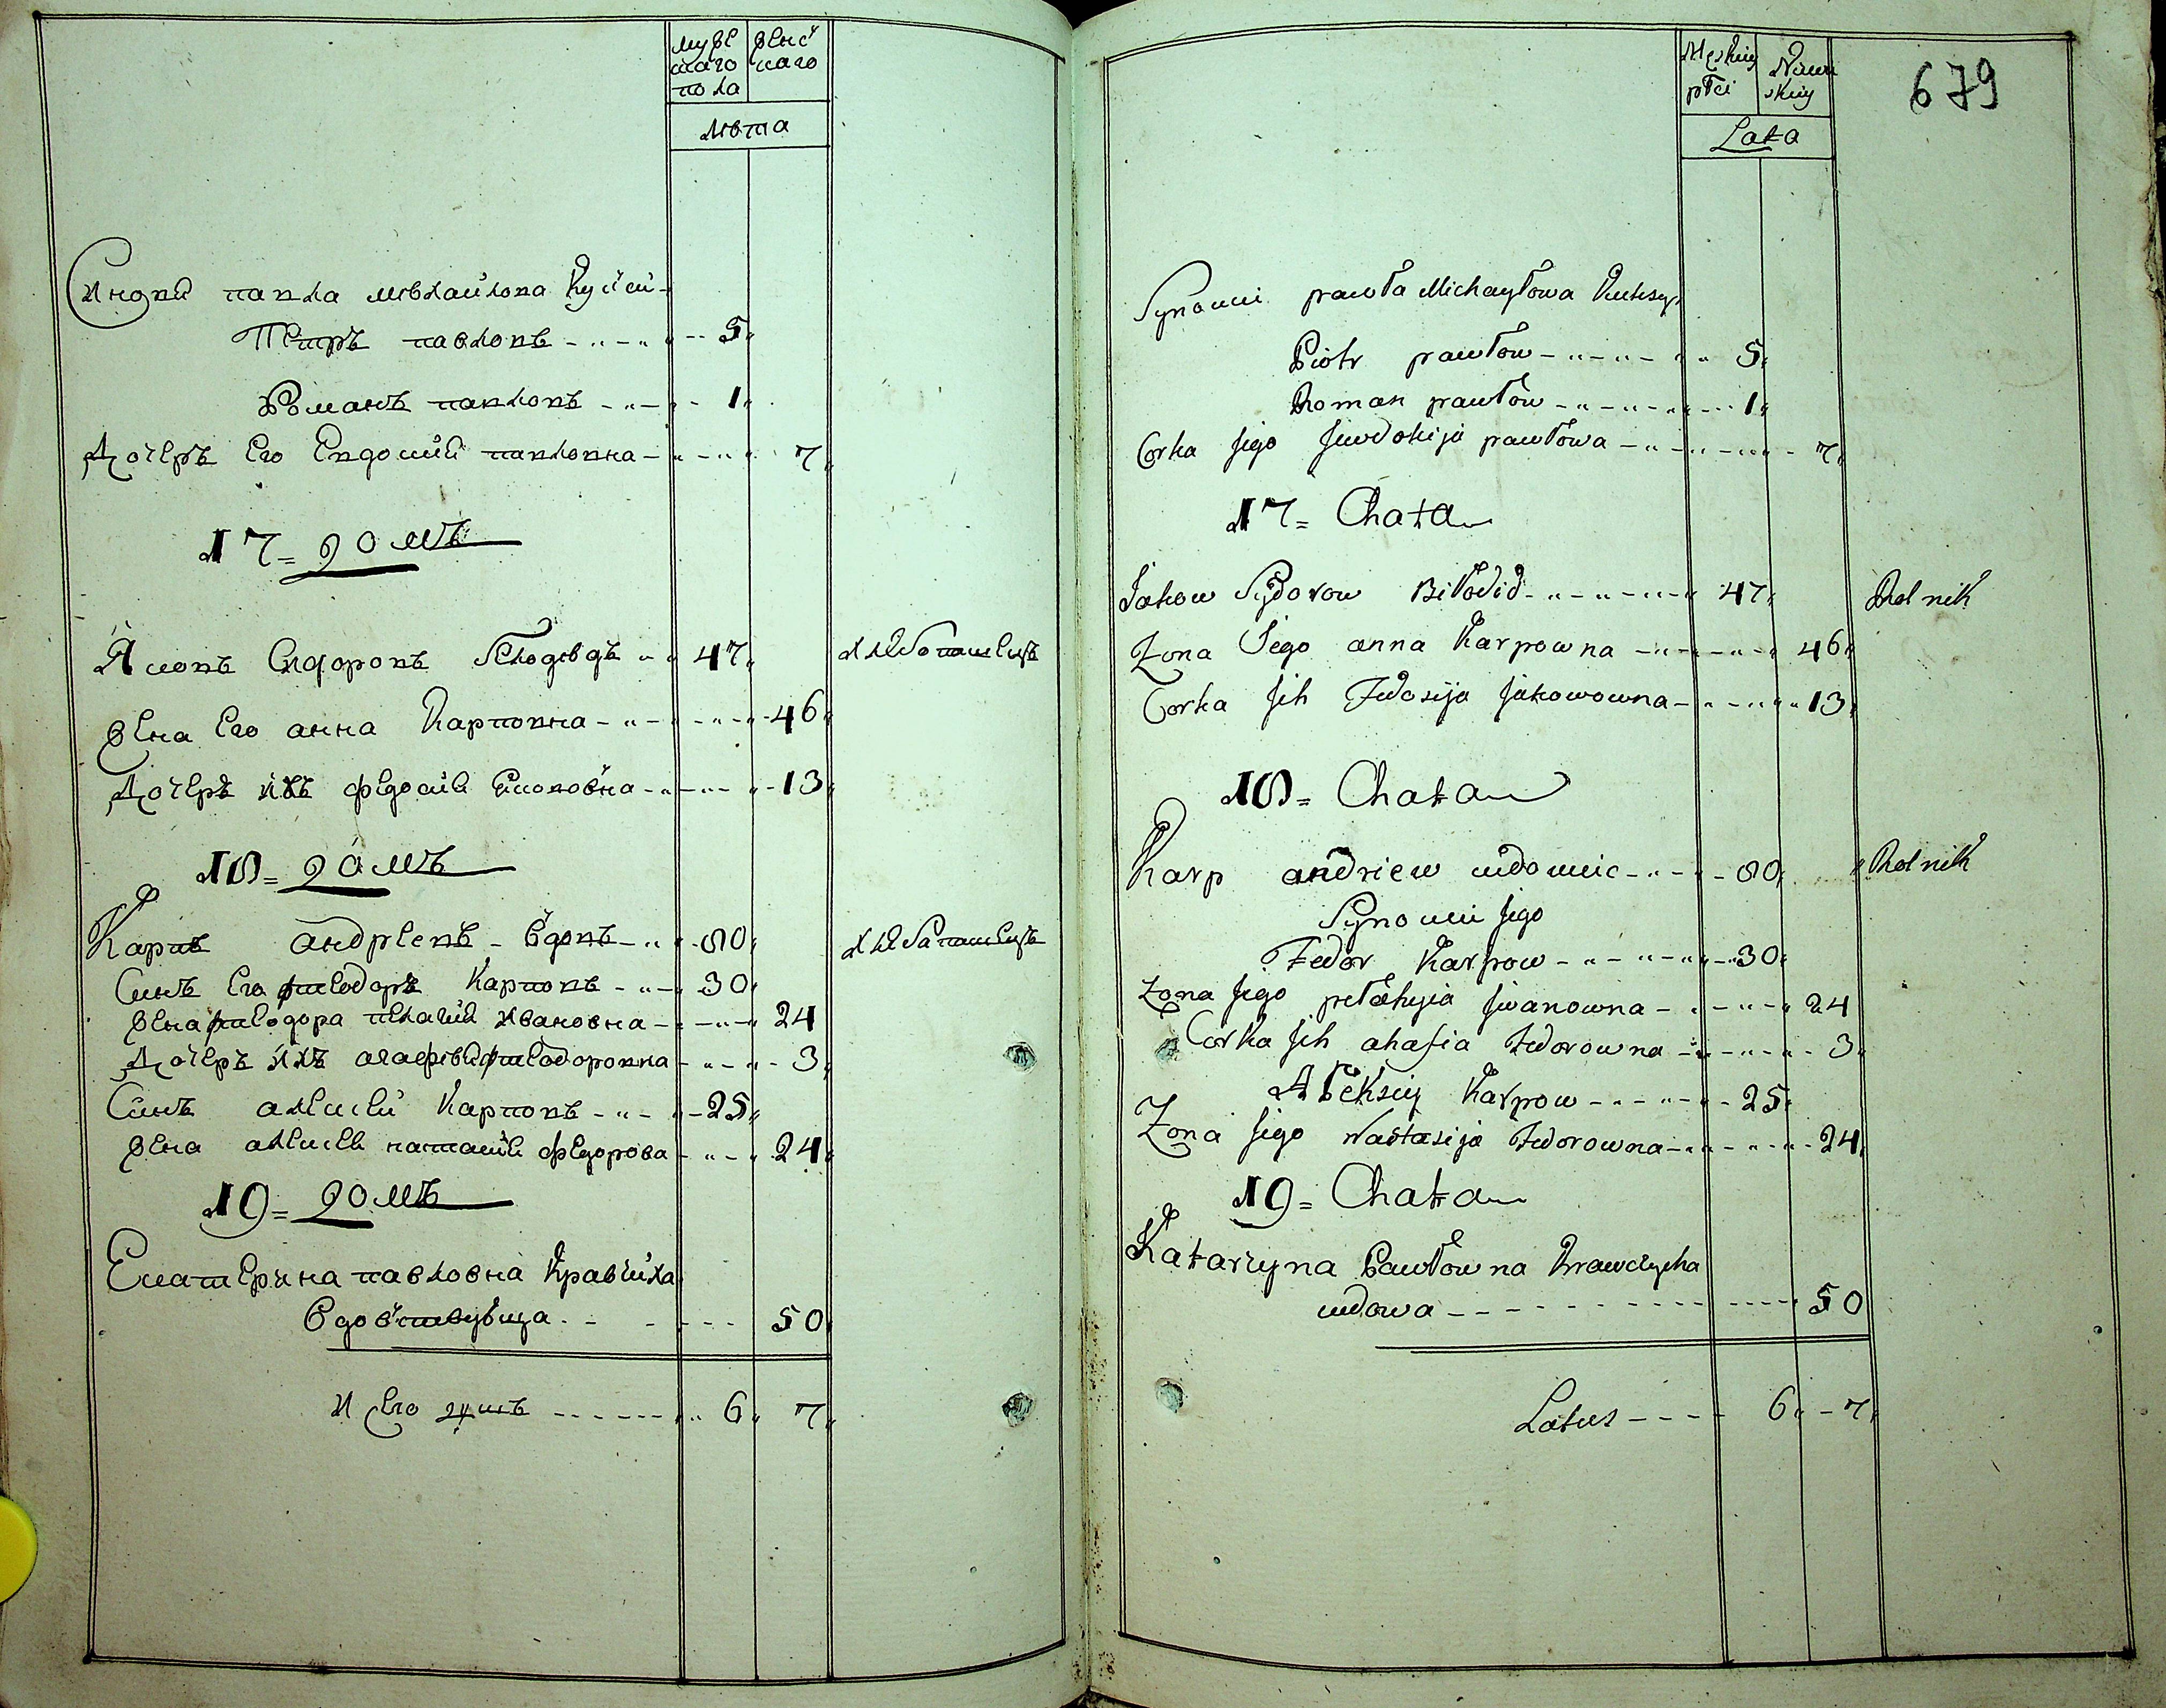 муже
скаго
пола
женс
каго
лѣта
Синови павла мѣхайлова
Петръ павловъ 5
Романъ павловъ 1
Дочеръ Его Евдокий павловна 7
17 = домъ
Яковъ Сидоровъ Бѣлодѣдъ 47 хлѣбопашецъ
Жена Его анна Карповна 46
Дочеръ ихъ федосия Якововна 13
18 = домъ
Карпъ андреевъ вдовъ 80 хлѣбопашецъ
Синъ Его феодоръ Карповъ 30
Жена феодора пелагия Ивановна 24
Дочеръ ихъ агафѣя феодоровна 3
Синъ алексей Карповъ 25
Жена алексея настасия федорова 24
19 = домъ
Екатерина павловна Кравчиха
50
И Его душъ 6 7
679
Męskiej
płci
Niewi
skiey
Lata
Synowi pawła Michayłowa
Piotr pawłow 5
Roman pawłow 1
Corka jego Jewdokija pawłowa 7
17 = Chata
Jakow Sydorow Biłodid 47 Rolnik
Zona Jego anna Karpowna 46
Corka jch Fedosija jakowowna 13
18 = Chata
Karp andriew wdowiec 80 Rolnik
Synowi jego
Fedor Karpow 30
Zona jego pełahyia jwanowna 24
Corka jch ahafia Fedorowna 3
Ałeksiy Karpow 25
Zona jego Nastasija Fedorowna 24
19 = Chata
Katarzyna Pawłowna Krawczycha
wdowa 50
Latus 6 7